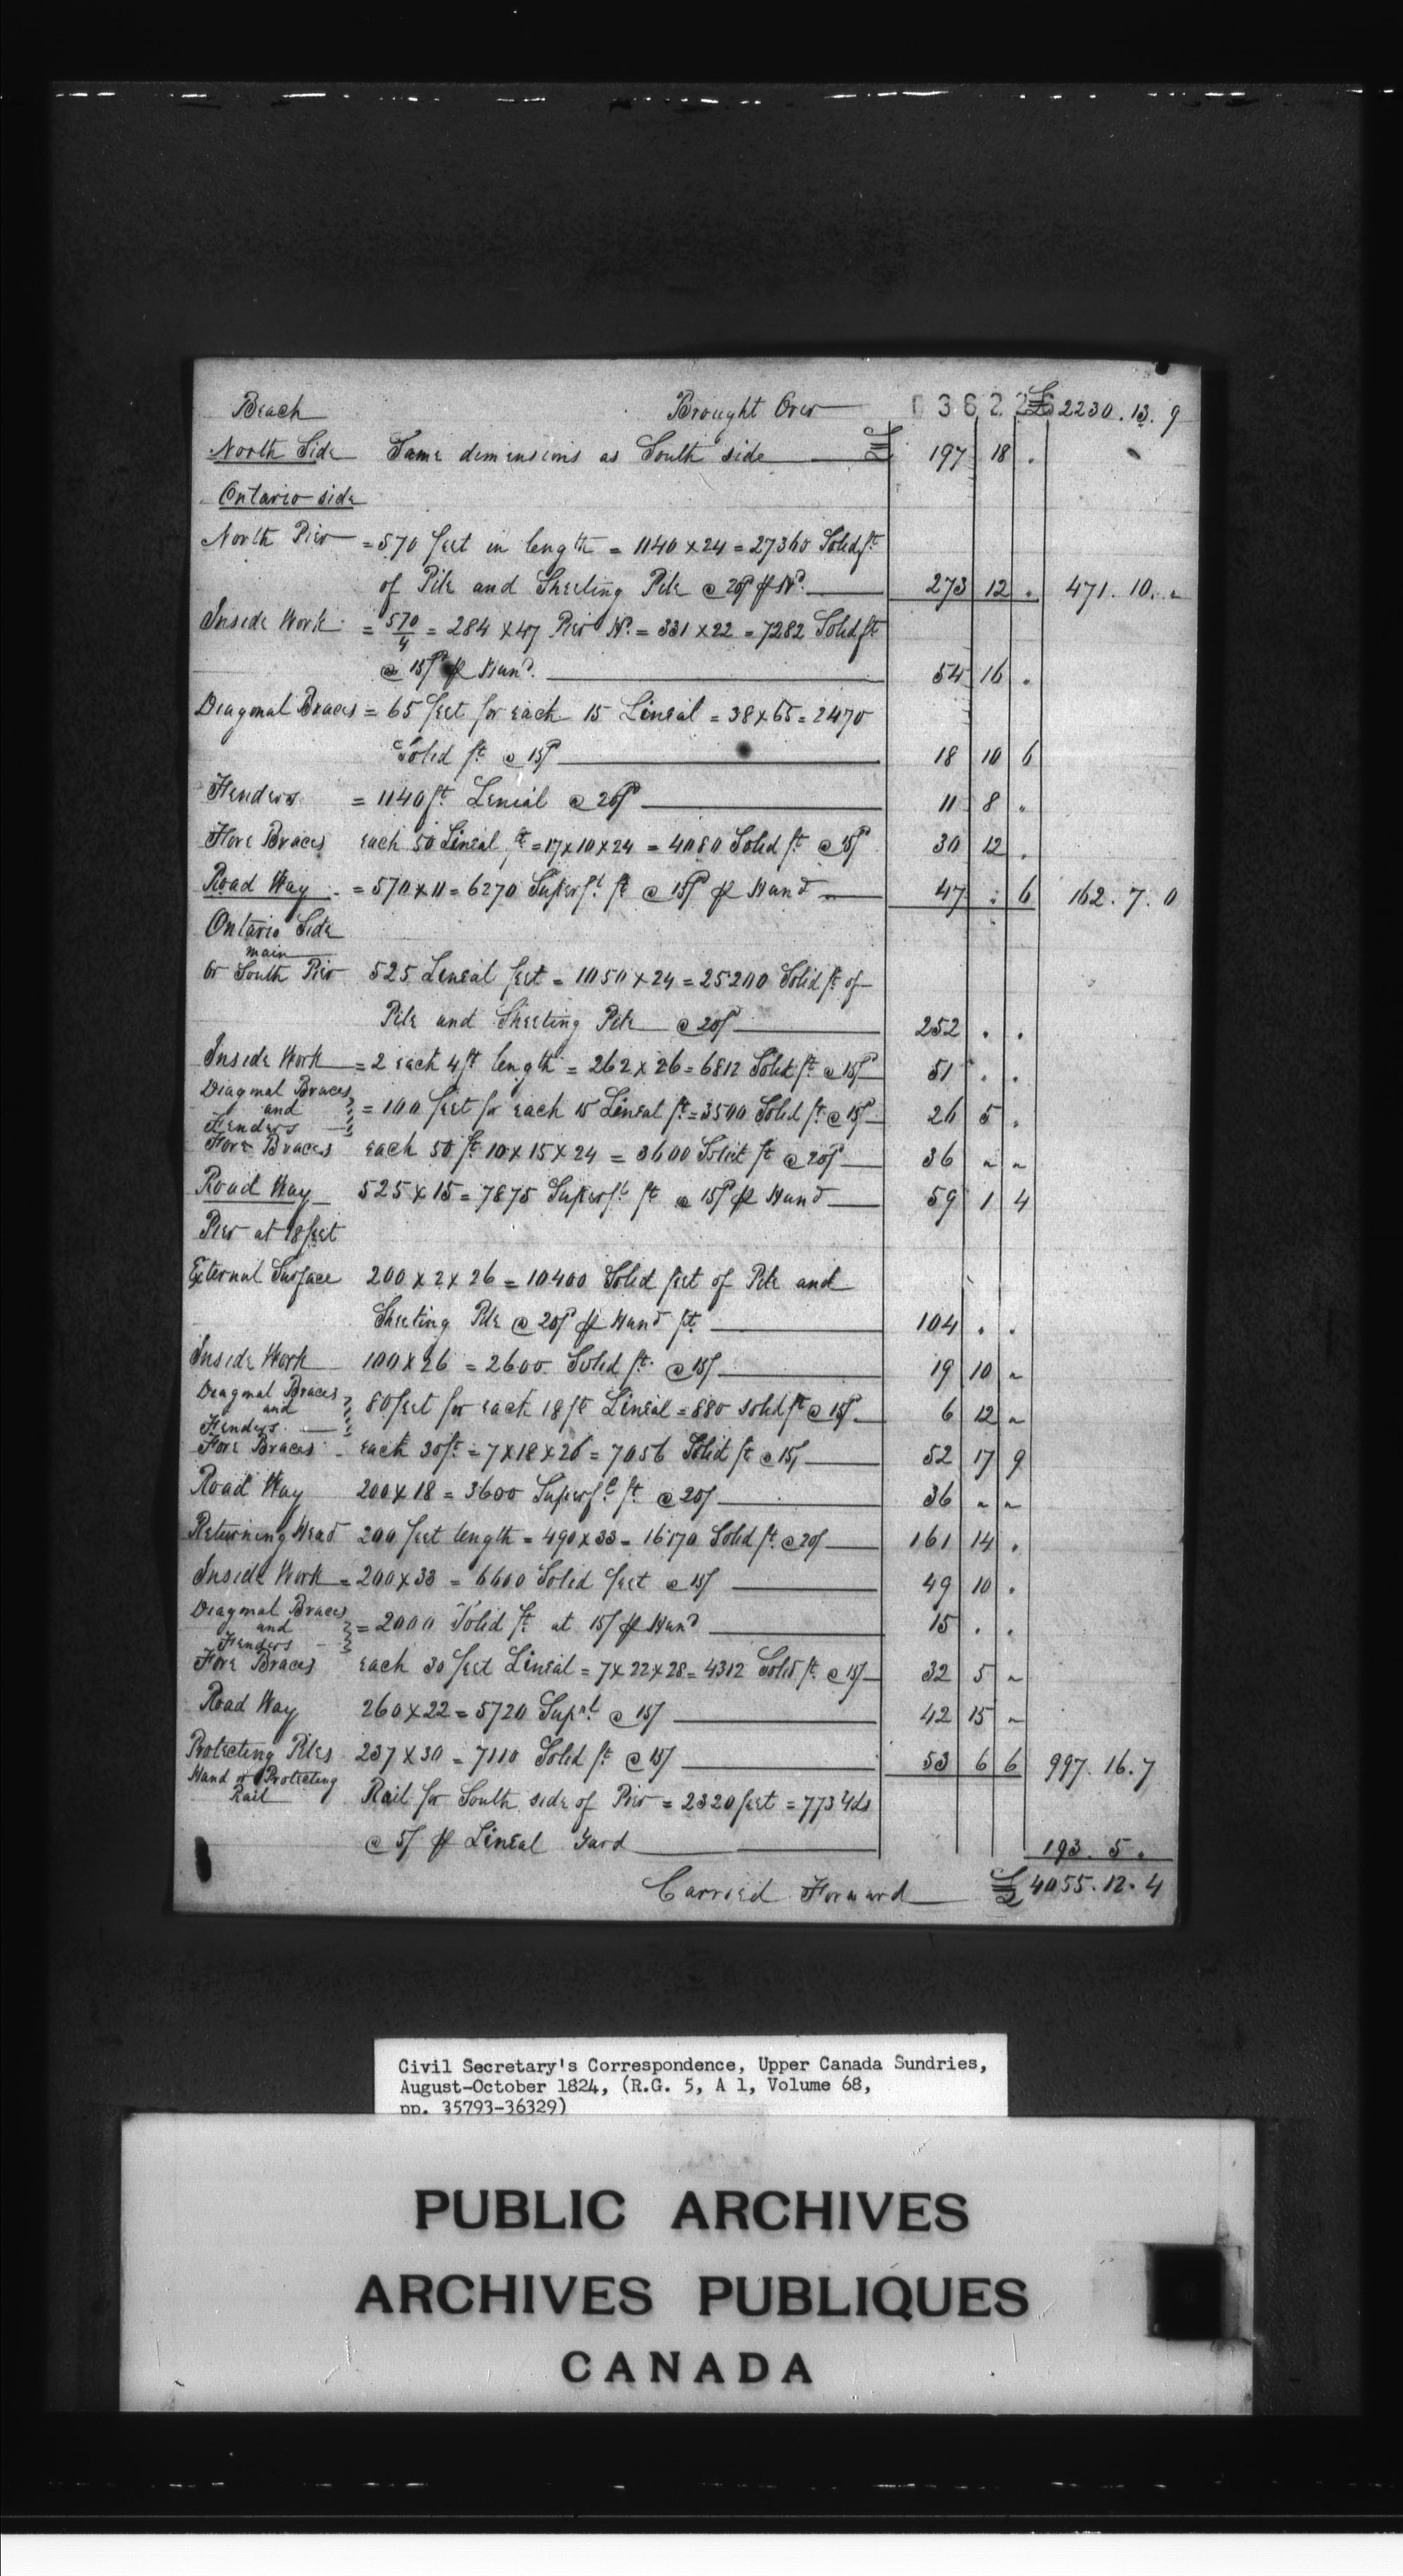 Beach Brought Over 036226 £2230.13.9
North Side Same dimensions as South side £ 197 18 .
Ontario side
North Pier = 570 feet in length = 1140 x 24 = 27360 Solid ft
of Pile and Sheeting Pile @ 20/ ⅌ Hd. 273 12 . 471.10. "
Inside Work = 570/4 = 284 x 47 Pier Hd. = 331 x 22 = 7282 Solid ft
@ 15/ ⅌ Hund. 54 16 .
Diagonal Braces = 65 feet for each 15 Lineal = 38 x 65 = 2470
Solid ft @ 15/ 18 10 6
Fenders = 1140 ft Lenial @ 20/ 11 8 "
Fore Braces each 50 Lineal ft = 17 x 10 x 24 = 4080 Solid ft @ 15/ 30 12 .
Road Way = 570 x 11 = 6270 Superfl ft @ 15/ ⅌ Hund 47 : 6 162.7.0
Ontario Side
main
or South Pier 525 Leneal feet = 1050 x 24 = 25200 Solid ft of
Pile and Sheeting Pile @ 20/ 252 . .
Inside Work = 2 each 4 ft length = 262 x 26 = 6812 Solid ft @ 15/ 51 . .
Diagonal Braces
and = 100 feet for each 15 Lineal ft = 3500 Solid ft @ 15/ 26 5 .
Fenders
Fore Braces each 50 ft 10 x 15 x 24 = 3600 Solid ft @ 20/ 36 " "
Road Way 525 x 15 = 7875 Superfl ft @ 15/ ⅌ Hund 59 1 4
Pier at 18 feet
External Surface 200 x 2 x 26 = 10400 Solid feet of Pile and
Sheeting Pile @ 20/ ⅌ Hund ft. 104 . .
Inside Work 100 x 26 = 2600 Solid ft. @ 15/ 19 10 "
Diagonal Braces
and 80 feet for each 18 ft Lineal = 880 solid ft @ 15/ 6 12 "
Fenders
Fore Braces each 30 ft = 7 x 18 x 26 = 7056 Solid ft @ 15/ 52 17 9
Road Way 200 x 18 = 3600 Superfl ft @ 20/ 36 " "
Returning Head 200 feet length = 490 x 33 = 16170 Solid ft. @ 20/ 161 14 .
Inside Work = 200 x 33 = 6600 Solid feet @ 15/ 49 10 .
Diagonal Braces
and = 2000 Solid ft at 15/ ⅌ Hund 15 . .
Fenders
Fore Braces each 30 feet Lineal = 7 x 22 x 28 = 4312 Solid ft. @ 15/ 32 5 "
Road Way 260 x 22 = 5720 Suprl @ 15/ 42 15 "
Protecting Piles 237 x 30 = 7110 Solid ft @ 15/ 53 6 6 997.16.7
Hand or Protecting
Rail Rail for South side of Pier = 2320 feet = 773 Yds
@ 5/ ⅌ Lineal Yard 193.5.
Carried Forward £4055.12.4
Civil Secretary's Correspondence, Upper Canada Sundries,
August-October 1824, (R.G. 5, A 1, Volume 68,
pp. 35793-36329)
PUBLIC ARCHIVES
ARCHIVES PUBLIQUES
CANADA